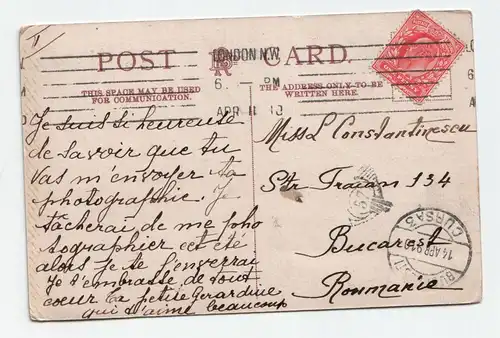 POST CARD.
LONDON.N.W.
6. PM
APR 11 10
THIS SPACE MAY BE USED
FOR COMMUNICATION.
THE ADDRESS ONLY TO BE
WRITTEN HERE.
Je suis si heureuse
de savoir que tu
vas m'envoyer ta
photographie. Je
tacherai de me pho
tographier cet été
alors je te l'enverrai
Je t'embrasse de tout
coeur la petite Gerardine
qui t'aime beaucoup
Miss L Constantinescu
Str Traian 134
Bucarest
Roumanie
CURSA 5
14 APR 91